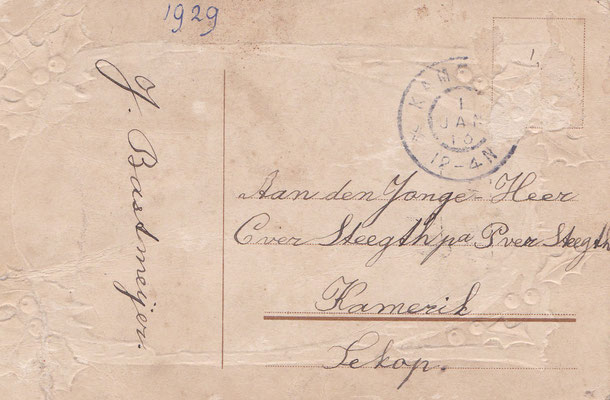 1929
J. Bastmeijer.
KAM
1
JAN
12-4N
Aan den Jonge-Heer
C ver Steegth pa P ver Steegth
Kamerik
Tekop.